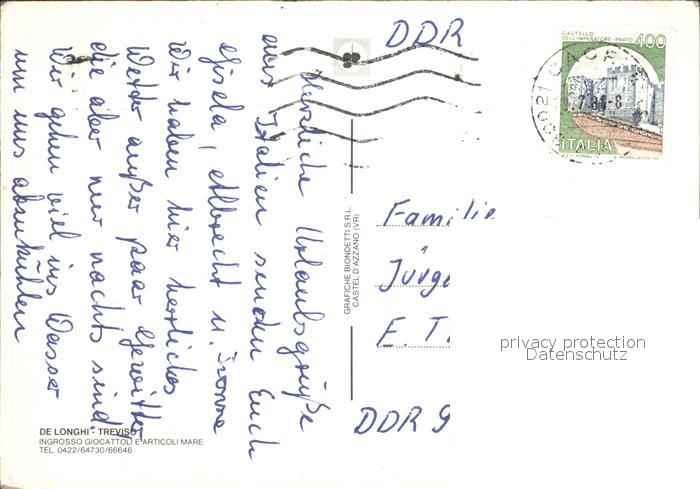 DDR
CASTELLO
DELL'IMPERATORE-PRATO 400
ITALIA
Herzliche Urlaubsgrüße
aus Italien senden Euch
Gisela, Albrecht u. Ivonne
Wir haben hier herrliches
Wetter außer paar Gewitter
die aber nur nachts sind.
Wir gehn viel ins Wasser
um uns abzukühlen
GRAFICHE BIONDETTI S.R.L.
CASTEL D'AZZANO (VR)
Familie
Jürge
E. T
DDR 9
privacy protection
Datenschutz
DE LONGHI - TREVISO
INGROSSO GIOCATTOLI E ARTICOLI MARE
TEL. 0422/64730/66646